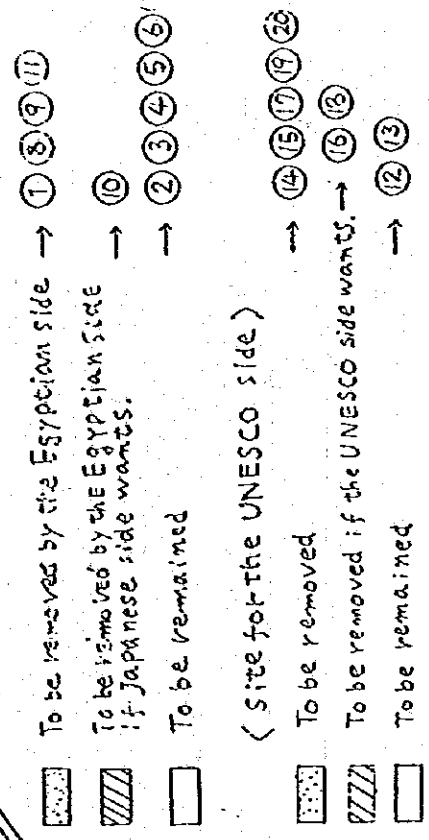 To be removed by the Egyptian side → ① ⑧ ⑨ ⑪
To be removed by the Egyptian side → ⑩
if Japanese side wants.
To be remained → ② ③ ④ ⑤ ⑥
(site for the UNESCO side)
To be removed → ⑭ ⑮ ⑰ ⑲ ⑳
To be removed if the UNESCO side wants. → ⑯ ⑱
To be remained → ⑫ ⑬